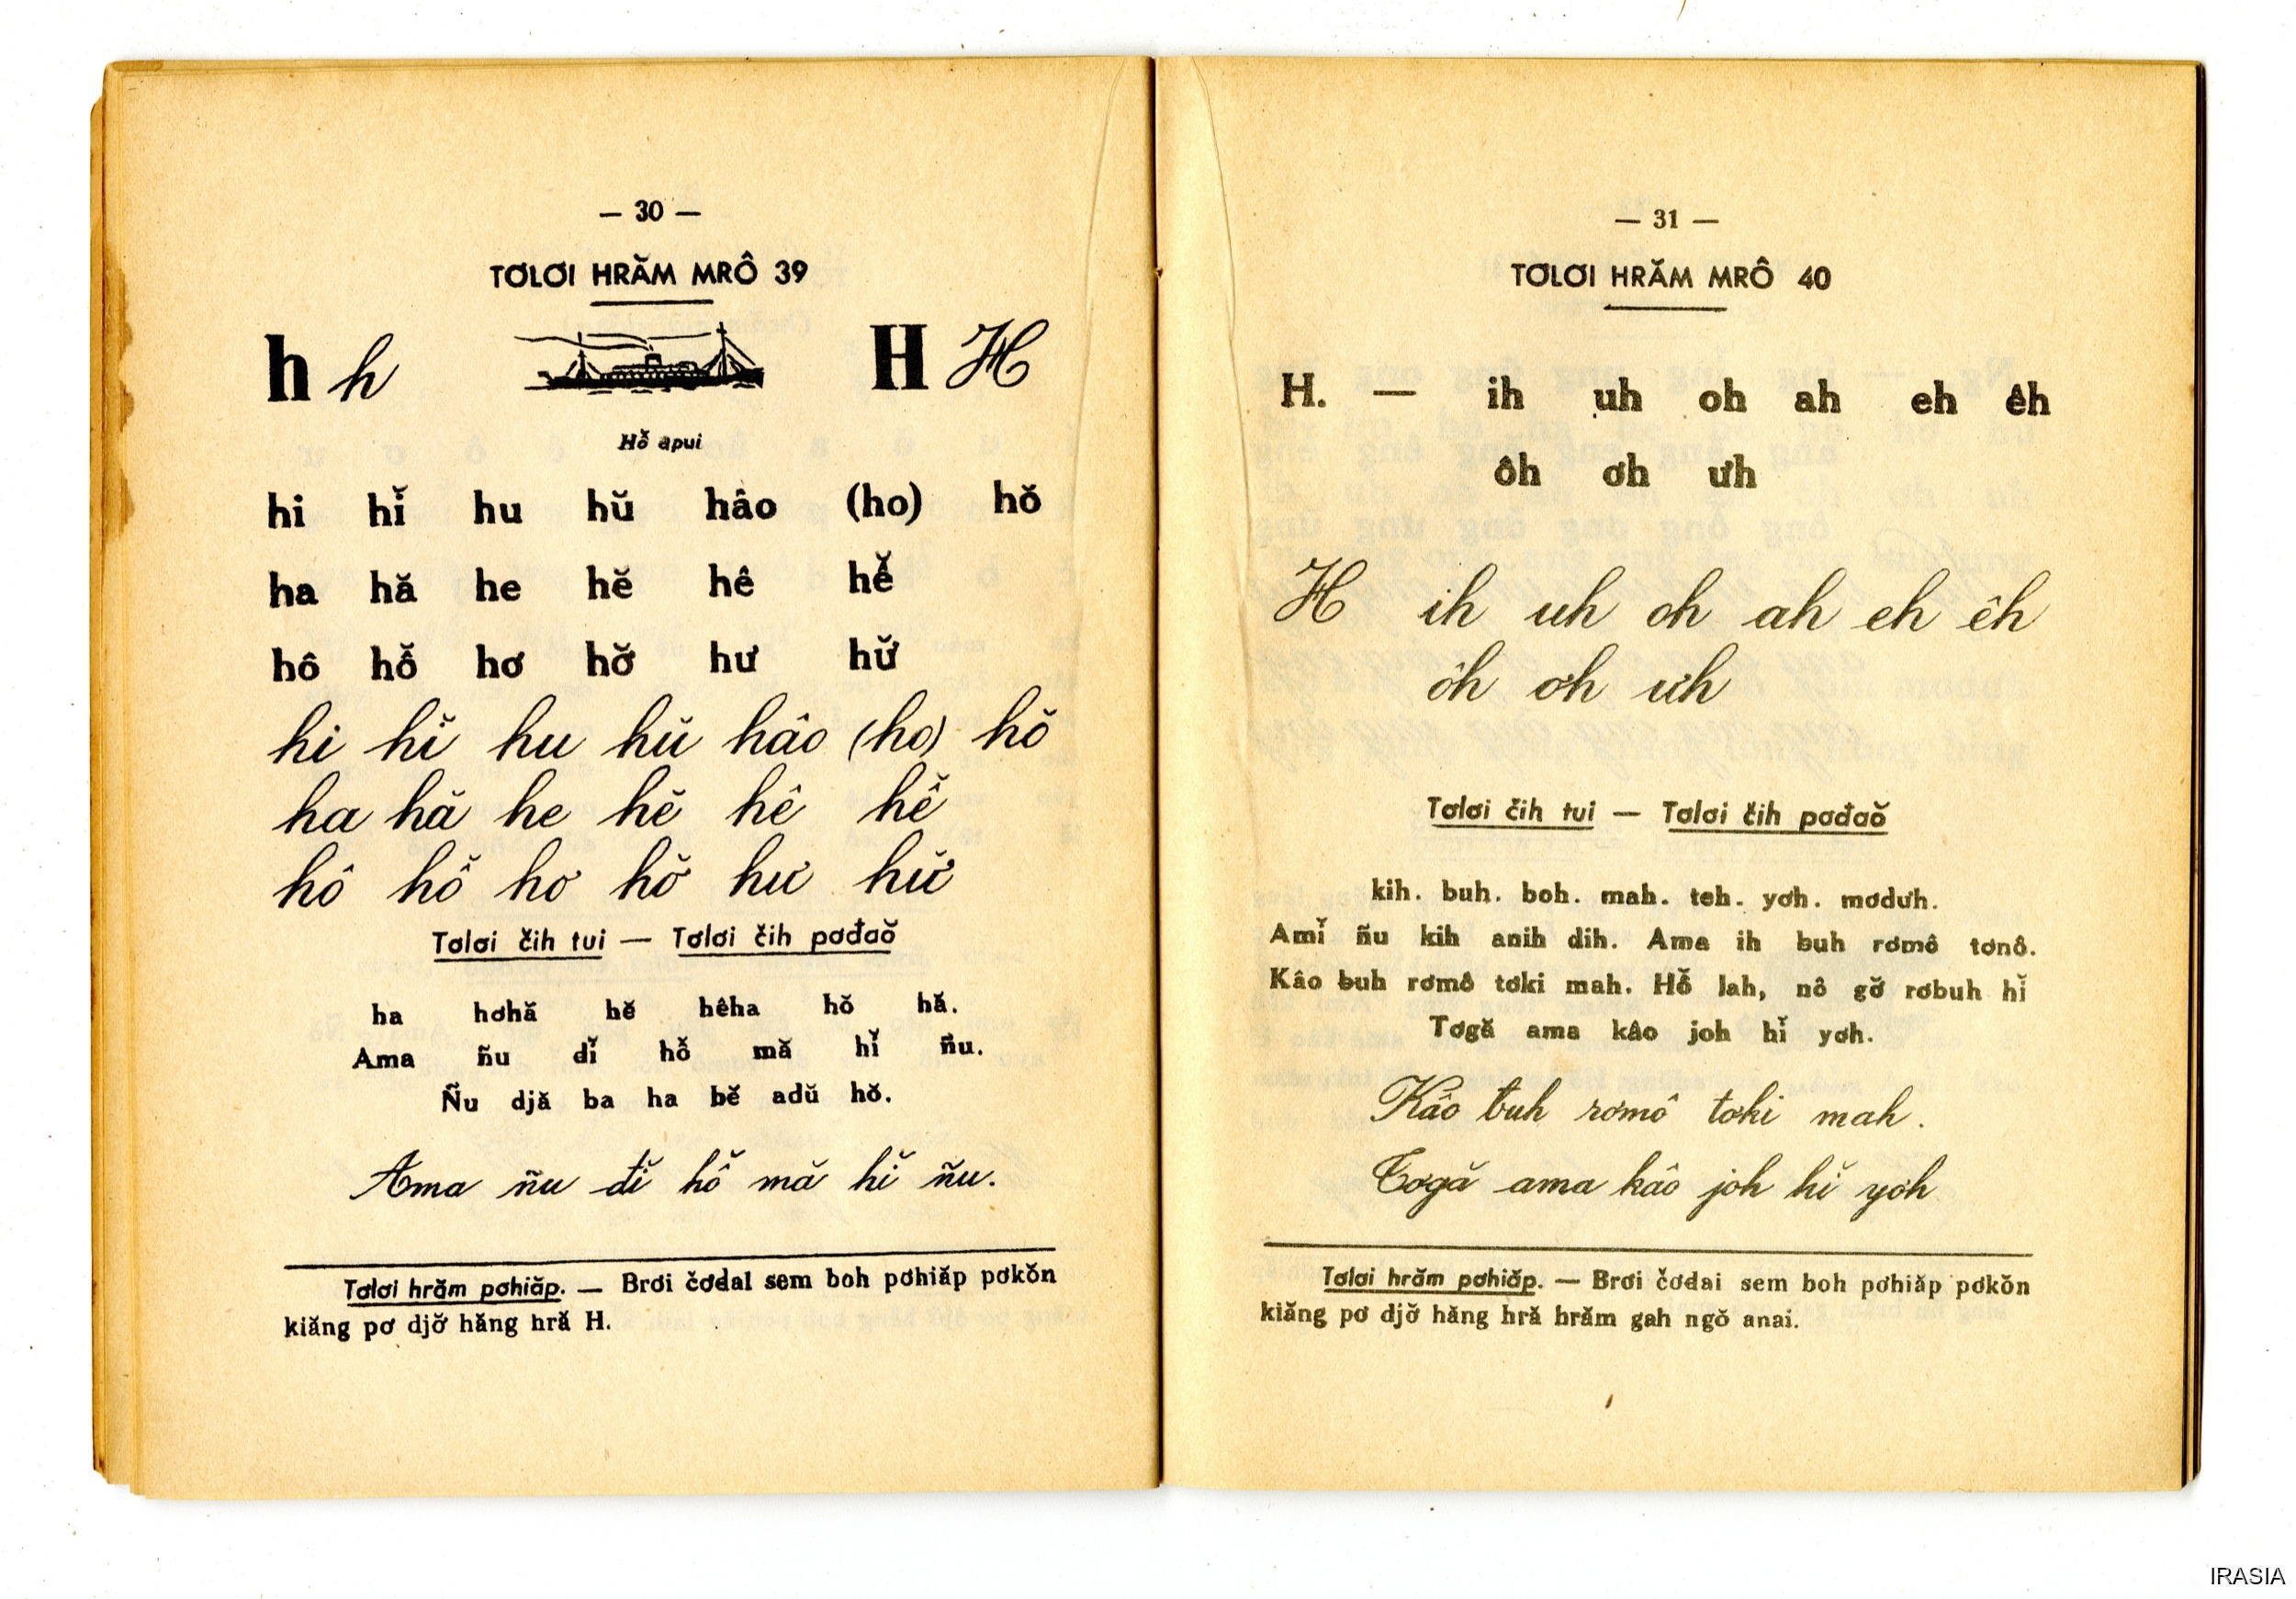 — 30 —
TƠLƠI HRĂM MRÔ 39
h h H H
Hô̆ apui
hi hĭ hu hŭ hâo (ho) hŏ
ha hă he hĕ hê hê̆
hô hô̆ hơ hơ̆ hư hư̆
hi hĭ hu hŭ hâo (ho) hŏ
ha hă he hĕ hê hê̆
hô hô̆ hơ hơ̆ hư hư̆
Tơlơi čih tui — Tơlơi čih pơđaŏ
ha hơhă hĕ hêha hŏ hă.
Ama ñu dĭ hô̆ mă hĭ ñu.
Ñu djă ba ha bĕ adŭ hŏ.
Ama ñu đĭ hô̆ mă hĭ ñu.
Tơlơi hrăm pơhiăp. — Brơi čơdal sem boh pơhiăp pơkŏn
kiăng pơ djơ̆ hăng hră H.
— 31 —
TƠLƠI HRĂM MRÔ 40
H. — ih uh oh ah eh êh
ôh ơh ưh
H ih uh oh ah eh êh
ôh ơh ưh
Tơlơi čih tui — Tơlơi čih pơđaŏ
kih. buh. boh. mah. teh. yơh. mơdưh.
Amĭ ñu kih anih dih. Ama ih buh rơmô tơnô.
Kâo ƀuh rơmô tơki mah. Hô̆ lah, nô gơ̆ rơbuh hĭ
Tơgă ama kâo joh hĭ yơh.
Kâo ƀuh rơmô tơki mah.
Tơgă ama kâo joh hĭ yơh
Tơlơi hrăm pơhiăp. — Brơi čơdai sem boh pơhiăp pơkŏn
kiăng pơ djơ̆ hăng hră hrăm gah ngŏ anai.
IRASIA